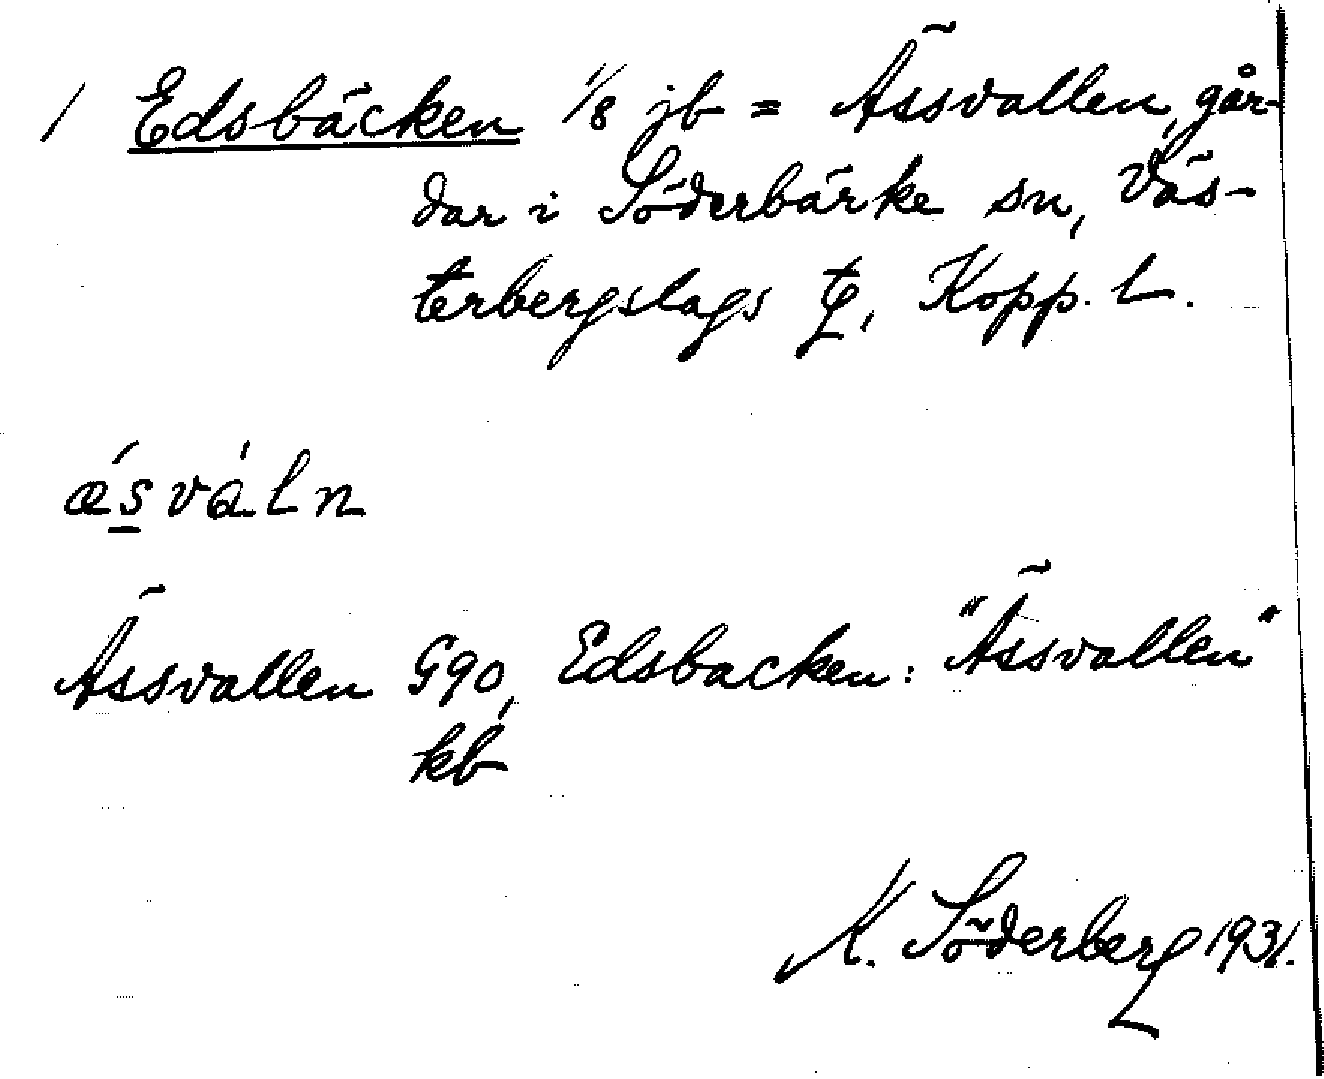 / Edsbäcken 1/8 jb = Ässvallen, går-
dar i Söderbärke sn, Väs-
terbergslags tg, Kopp. L.
æ´s̱vàln
Ässvallen G90, Edsbacken: "Ässvallen"
kb
K. Söderberg 1931.